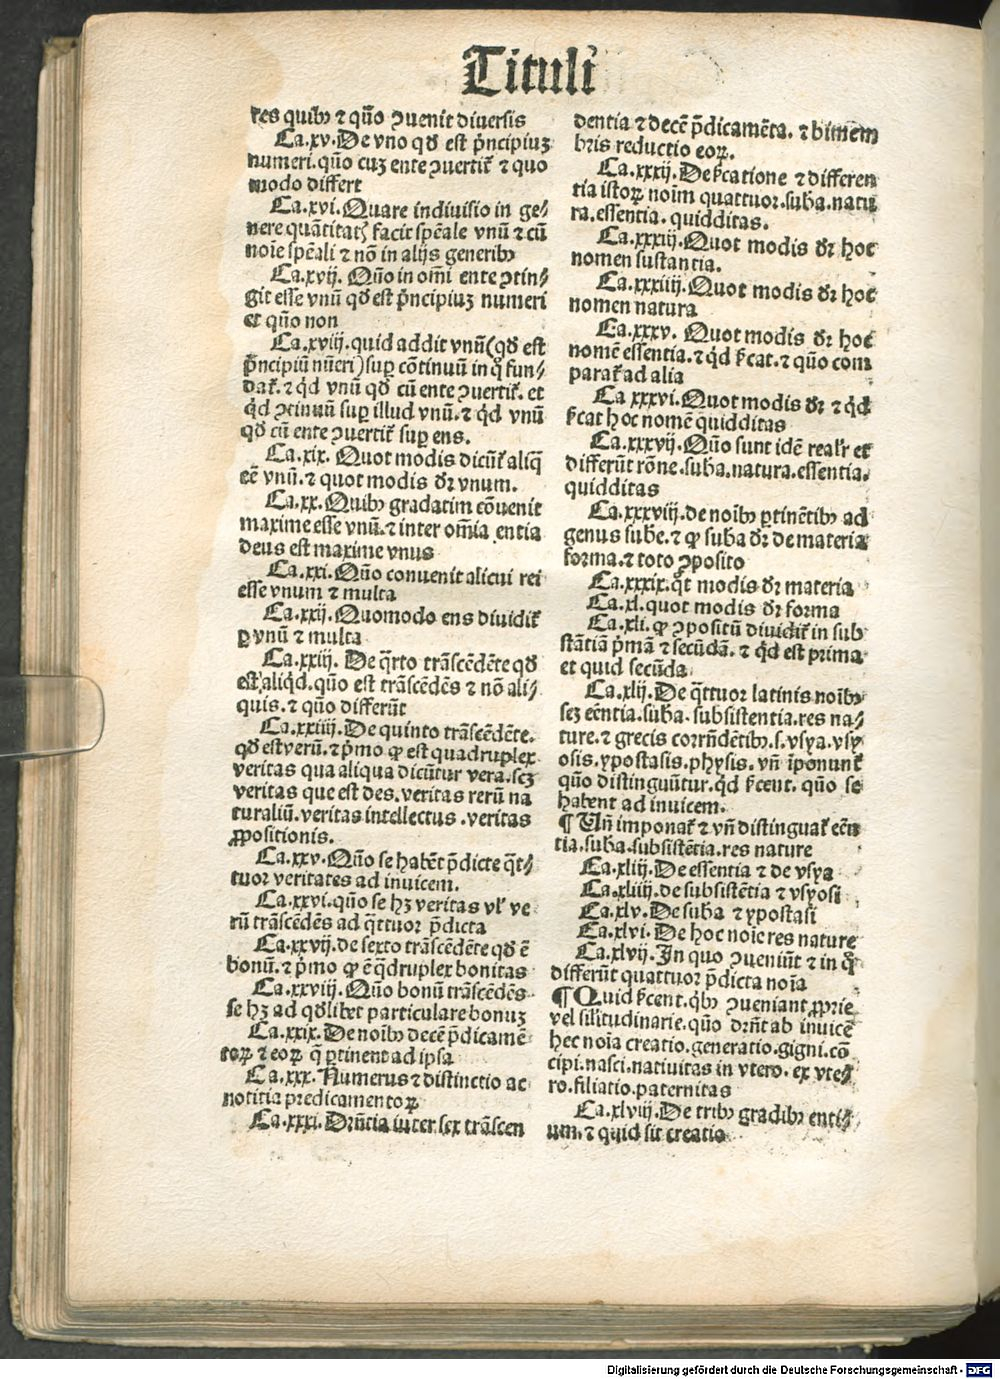 Tituli
res quibꝫ ⁊ qūo ꝯuenit diuersis
Ca.xv.De vno qð est p̄ncipiuꝫ
numeri.qūo cuꝫ ente ꝯuertit̄ ⁊ quo
modo differt
Ca.xvi.Quare indiuisio in ge/
nere quātitatꝭ facit spēale vnū ⁊ cū
noīe spēali ⁊ nō in alijs generibꝫ
Ca.xvij. Qūo in om̄i ente ꝯtin/
git esse vnū qð est p̄ncipiuꝫ numeri
et qūo non
Ca.xviij.quid addit vnū(qð est
p̄ncipiū nūeri)suꝑ cōtinuū in q̊ fun/
dat̄.⁊ qd̄ vnū qð cū ente ꝯuertit̄.et
qd̄ ꝯtinuū suꝑ illud vnū.⁊ qd̄ vnū
qð cū ente ꝯuertit̄ suꝑ ens.
Ca.xix. Quot modis dicūt̄ aliq̄
eē vnū.⁊ quot modis dr̄ vnum.
Ca.xx.Quibꝫ gradatim cōuenit
maxime esse vnū.⁊ inter om̄ia entia
deus est maxime vnus
Ca.xxi.Qūo conuenit alicui rei
esse vnum ⁊ multa
Ca.xxij.Quomodo ens diuidit̄
ꝑ vnū ⁊ multa
Ca.xxiij. De q̄rto trāscēdēte qð
est aliqd̄.qūo est trāscēdēs ⁊ nō ali/
quis.⁊ qūo differūt
Ca.xxiiij.De quinto trāscēdēte.
qð est verū.⁊ p̄mo ꝙ est quadruplex
veritas qua aliqua dicūtur vera.scꝫ
veritas que est des.veritas rerū na
turaliū.veritas intellectus.veritas
ꝓpositionis.
Ca.xxv.Qūo se habēt p̄dicte q̄t/
tuor veritates ad inuicem.
Ca.xxvi.qūo se hꝫ veritas vl̄ ve
rū trāscēdēs ad q̄ttuor p̄dicta
Ca.xxvij.de sexto trāscēdēte qð ē
bonū.⁊ p̄mo ꝙ ē q̄druplex bonitas
Ca.xxviij.Qūo bonū trāscēdēs
se hꝫ ad qðlibet particulare bonuꝫ
Ca.xxix.De noībꝫ decē p̄dicamē
toꝝ ⁊ eoꝝ q̄ ꝑtinent ad ipsa
Ca.xxx.Numerus ⁊ distinctio ac
notitia predicamentoꝝ
Ca.xxxi.Drn̄tia inter sex trāscen
dentia ⁊ decē p̄dicamēta.⁊ bimem
bris reductio eoꝝ.
Ca.xxxij.De ſ̄catione ⁊ differen
tia istoꝝ noīm quattuor.suba.natu
ra.essentia.quidditas.
Ca.xxxiij.Quot modis dr̄ hoc
nomen sustantia.
Ca.xxxiiij.Quot modis dr̄ hoc
nomen natura
Ca.xxxv. Quot modis dr̄ hoc
nomē essentia.⁊ qd̄ ſ̄cat.⁊ qūo com
parat̄ ad alia
Ca xxxvi.Quot modis dr̄ ⁊ qd̄
ſ̄cat hoc nomē quidditas
Ca.xxxvij.Qūo sunt idē realr̄ et
differūt rōne.suba.natura.essentia.
quidditas
Ca.xxxviij.de noībꝫ ꝑtinētibꝫ ad
genus sube.⁊ ꝙ suba dr̄ de materia
forma.⁊ toto ꝯposito
Ca.xxxix.q̊t modis dr̄ materia
Ca.xl.quot modis dr̄ forma
Ca.xli.ꝙ ꝯpositū diuidit̄ in sub
stātiā p̄mā ⁊ secūdā.⁊ qd̄ est prima
et quid secūda
Ca.xlij.De q̄ttuor latinis noībꝫ
seꝫ eēntia.suba.subsistentia.res na/
ture.⁊ grecis corrn̄dētibꝫ.s.vsya.vsy
osis.ypostasis.physis.vn̄ īponunt̄
qūo distinguūtur.qd̄ ſ̄cent. qūo se
habent ad inuicem.
¶ Un̄ imponat̄ ⁊ vn̄ distinguat̄ eēn
tia.suba.subsistētia.res nature
Ca.xliij.De essentia ⁊ de vsya
Ca.xliiij.de subsistētia ⁊ vsyosi
Ca.xlv.De suba ⁊ ypostasi
Ca.xlvi.De hoc noīe res nature
Ca.xlvij.In quo ꝯueniūt ⁊ in q̊
differūt quattuor p̄dicta noīa
¶Quid ſ̄cent.qbꝫ ꝯueniant ꝓprie
vel silitudinarie.qūo drn̄t ab inuicē
hec noīa creatio.generatio.gigni.cō
cipi.nasci.natiuitas in vtero.ex vte/
ro.filiatio.paternitas
Ca.xlviij.De tribꝫ gradibꝫ enti/
um.⁊ quid sit creatio
Digitalisierung gefördert durch die Deutsche Forschungsgemeinschaft - DFG